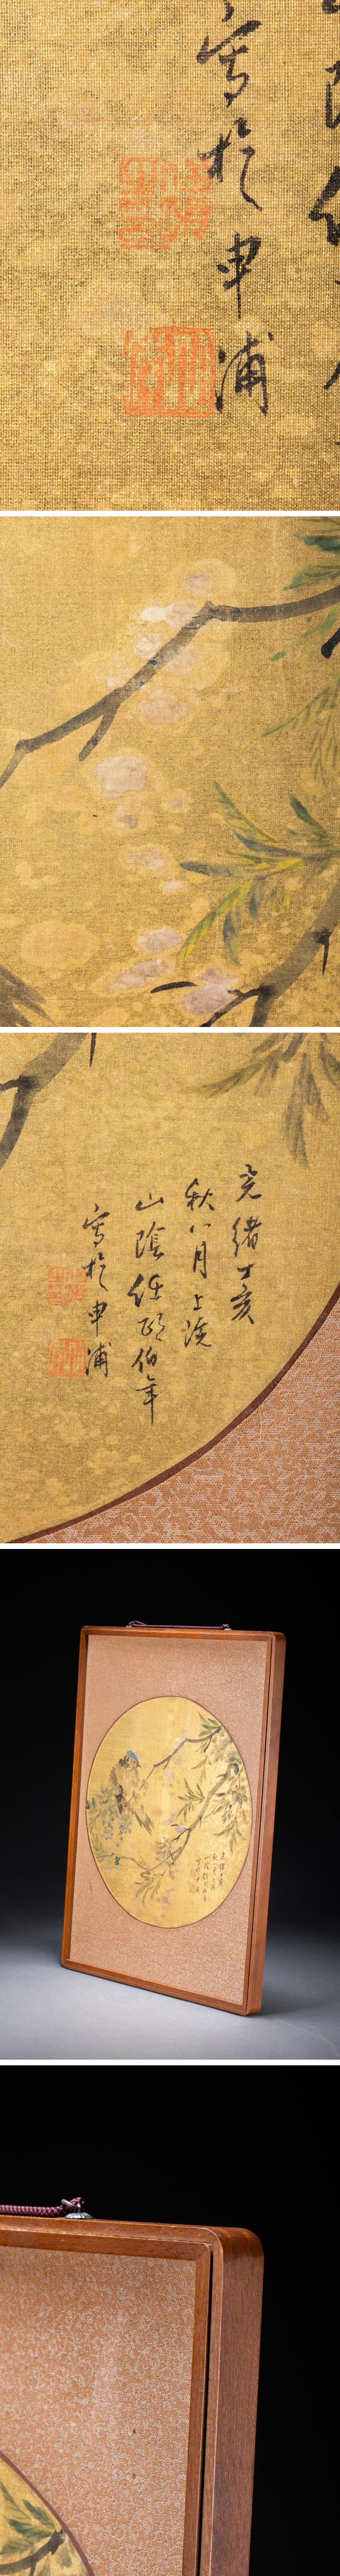 寫於申浦
光緒丁亥
秋八月上浣
山陰任頤伯年
寫於申浦